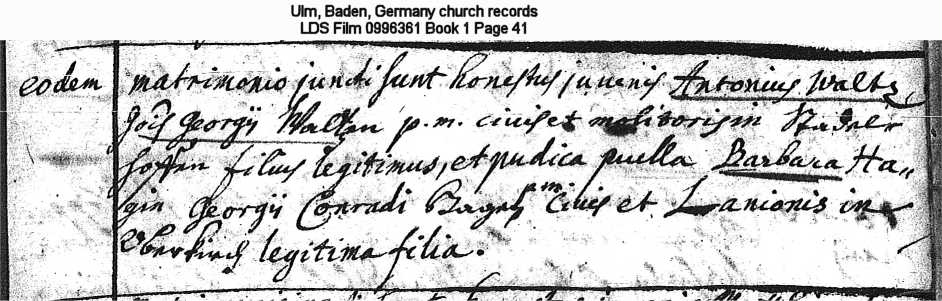 Ulm, Baden, Germany church records
LDS Film 0996361 Book 1 Page 41
eodem matrimonio juncti sunt honestus juvenis Antonius Waltz
Georgij Waltzen p.m. civis et molitoris in Stadel
hoffen filius legitimus, et pudica puella Barbara Ha„
gin Georgij Conradi p.m. civis et Lanionis in
Oberkirch legitima filia.